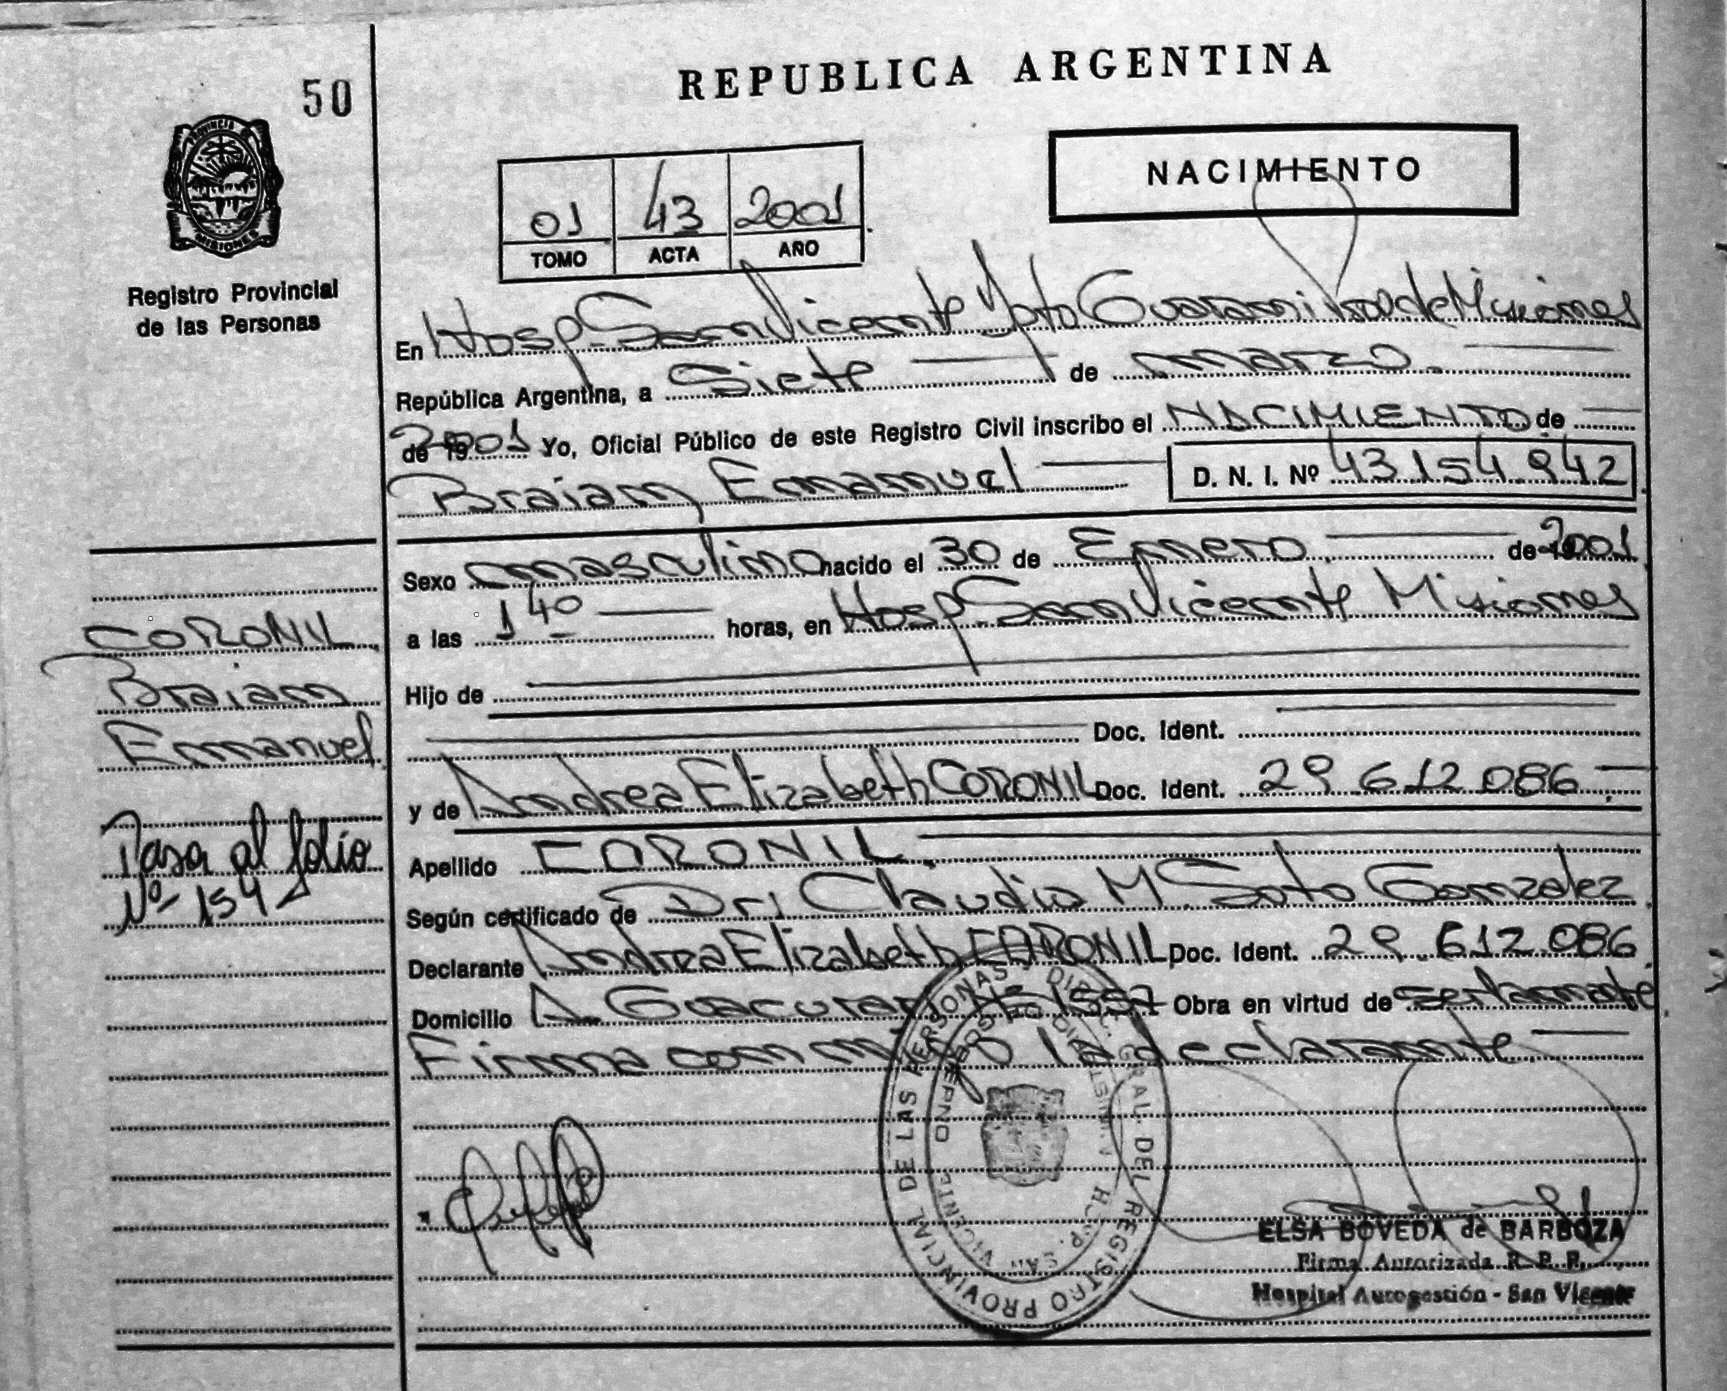 50
REPUBLICA ARGENTINA
PROVINCIA DE MISIONES
NACIMIENTO
01 43 2001
TOMO ACTA AÑO
Registro Provincial
de las Personas
En Hosp. San Vicente Dpto Guarani de Misiones
República Argentina, a Siete de marzo
de 2001 Yo, Oficial Público de este Registro Civil inscribo el NACIMIENTO de
Braian Emanuel D. N. I. Nº 43.154.942
Sexo masculino nacido el 30 de Enero de 2001
a las 1 40 horas, en Hosp. San Vicente Misiones
Hijo de
Doc. Ident.
y de Andrea Elizabeth CORONIL Doc. Ident. 29.612.086
Apellido CORONIL
Según certificado de Dr. Claudio M. Soto Gonzalez
Declarante Andrea Elizabeth CORONIL Doc. Ident. 29.612.086
Domicilio A. Guacurari Nº 1557 Obra en virtud de
Firma la declarante
CORONIL
Braian
Emanuel
Pasa al folio
Nº 154
DIRECC. GRAL. DEL REGISTRO PROVINCIAL DE LAS PERSONAS
HOSP. SAN VICENTE
ELSA BOVEDA de BARBOZA
Firma Autorizada R. P. P.
Hospital Autogestión - San Vicente